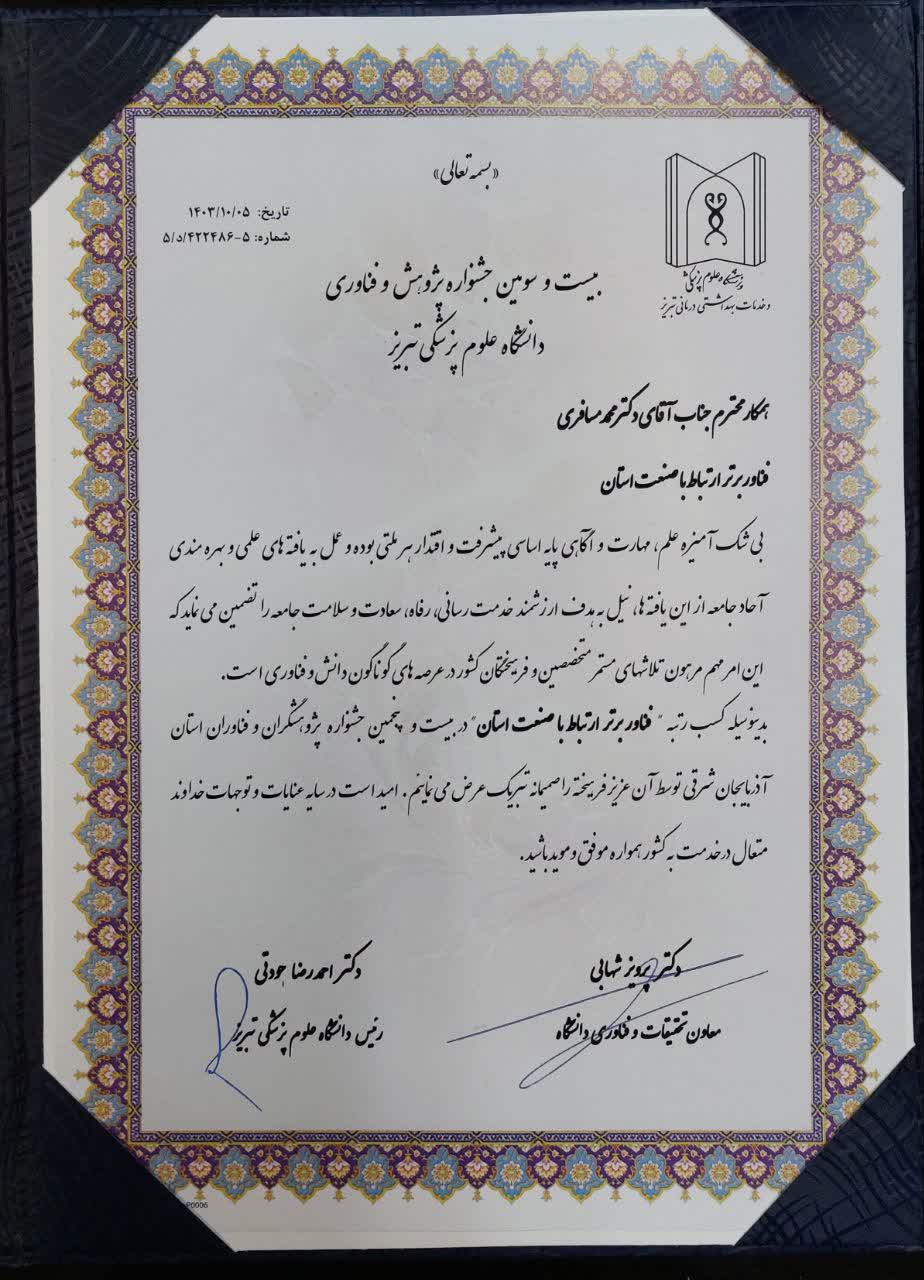 «بسمه تعالی»
تاریخ: ۱۴۰۳/۱۰/۰۵
شماره: ۵-۴۲۲۴۸۶/د/۵
دانشگاه علوم پزشکی
و خدمات بهداشتی درمانی تبریز
بیست و سومین جشنواره پژوهش و فناوری
دانشگاه علوم پزشکی تبریز
همکار محترم جناب آقای دکتر محمد مسافری
فناور برتر ارتباط با صنعت استان
بی شک آمیزه علم، مهارت و آگاهی پایه اساسی پیشرفت و اقتدار هر ملتی بوده و عمل به یافته های علمی و بهره مندی
آحاد جامعه از این یافته ها، نیل به هدف ارزشمند خدمت رسانی، رفاه، سعادت و سلامت جامعه را تضمین می نماید که
این امر مهم مرهون تلاشهای مستمر متخصصین و فرهیختگان کشور در عرصه های گوناگون دانش و فناوری است.
بدینوسیله کسب رتبه "فناور برتر ارتباط با صنعت استان" در بیست و پنجمین جشنواره پژوهشگران و فناوران استان
آذربایجان شرقی توسط آن عزیز فرهیخته را صمیمانه تبریک عرض می نمایم. امید است در سایه عنایات و توجهات خداوند
متعال در خدمت به کشور همواره موفق و موید باشید.
دکتر پرویز شهابی
معاون تحقیقات و فناوری دانشگاه
دکتر احمدرضا جودتی
رئیس دانشگاه علوم پزشکی تبریز
P0006